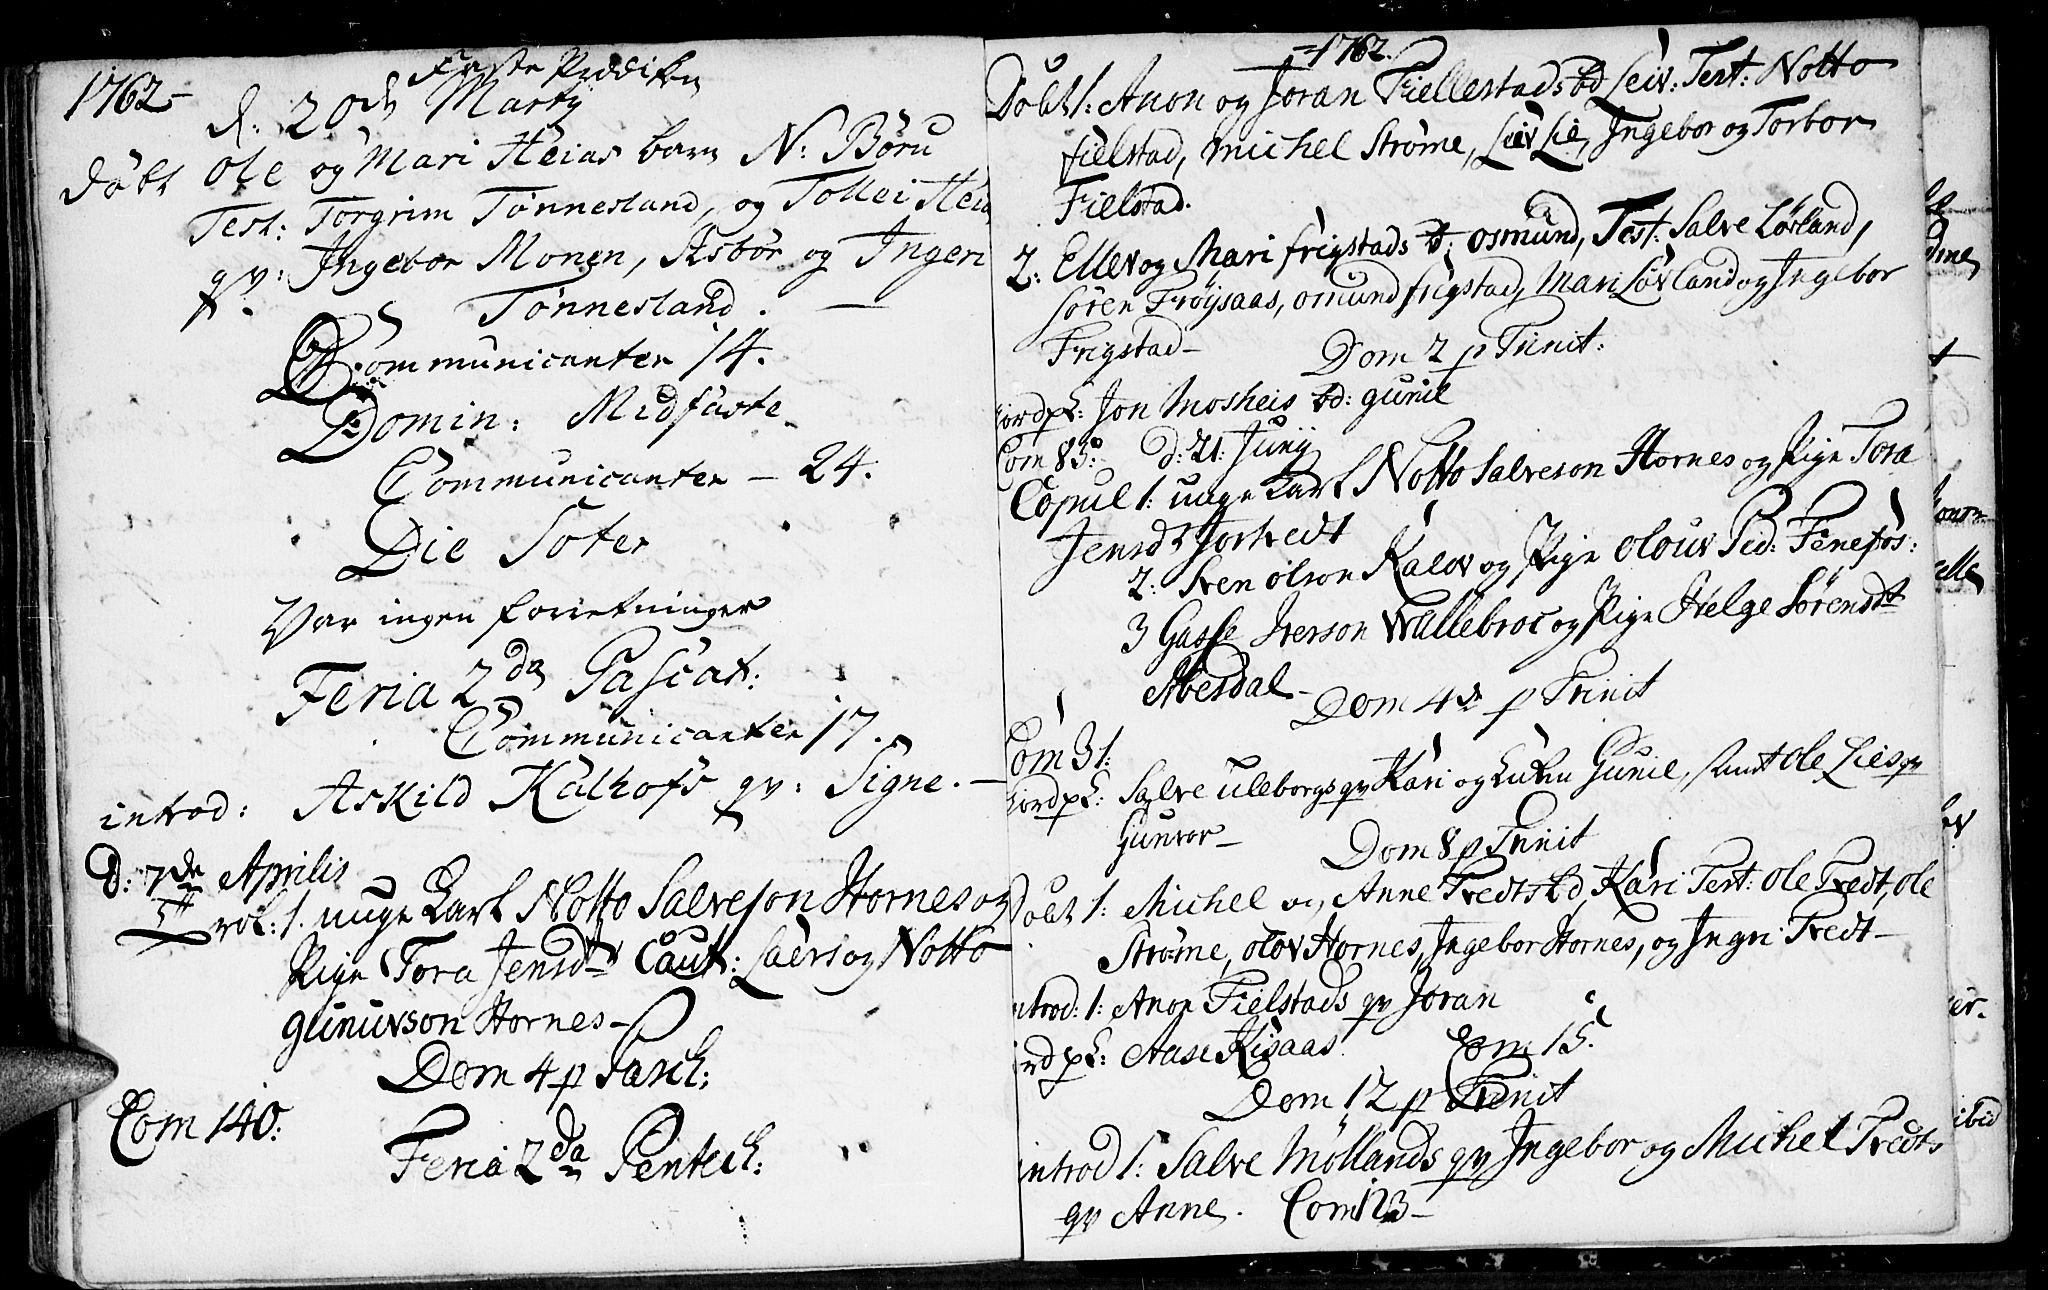 1762 -
Faste Prædiken
d: 20de Martij
Døbt Ole og Mari Heias barn N: Børu
Test: Torgrim Tønnesland, og Tollei Heia
qv: Ingebor Monen, Asbor og Ingeri
Tønnesland. —
Communicanter 14.
Domin: Midfaste
Communicanter — 24.
Die Soter
Var ingen forretninger
Feria 2da Pascat:
Communicanter 17.
introd: Askild Kålhofs qv: Signe. —
D: 7de Aprilis
1. unge Karl Notto Salveson Hornes og
Pige Tora Jensdt Caut: Laers og Notto
Gunuvson Hornes —
Dom 4 p Pasch:
Com 140:
Feria 2da Pentech:
1762.
Døbt 1: Anon og Joran Fiellestads bd Leiv: Test: Notto
fielstad, Michel Strøme, Leiv Lie, Ingebor og Torbor
Fielstad.
2: Ellev og Mari frigstads b: Osmund, Test: Salve Løvland,
Søren Frøysaas, Osmund frigstad, Mari Løvland og Ingebor
Frigstad —
Dom 2 p Trinit:
Jon Mosheis bd: gunil
Com 85: d: 21: Junij
Copul 1: unge Karl Notto Salveson Hornes og Pige Tora
Jensdt Jortvedt
2: Sven Olson Kalov og Pige Olouv Ped: Fenefos:
3 Gasse Iverson Wallebroe og Pige Helge Sørensdt
Abesdal —
Dom 4de p Trinit
Com 31:
Salve Uleborgs qv Kari og Gunil, samt Ole Lies qv
Gunvor —
Dom 8 p Trinit
Døbt 1: Michel og Anne Tvedts bd, Kari Test: Ole Tvedt, Ole
Strøme, Olov Hornes, Ingebor Hornes, og Ingri Tvedt —
introd: 1: Anon Fielstads qv Joran
Aase Kisaas Com 15.
Dom 12 p Trinit
introd 1: Salve Møllands qv Ingebor og Michel Tvedts
qv Anne. Com 123 —